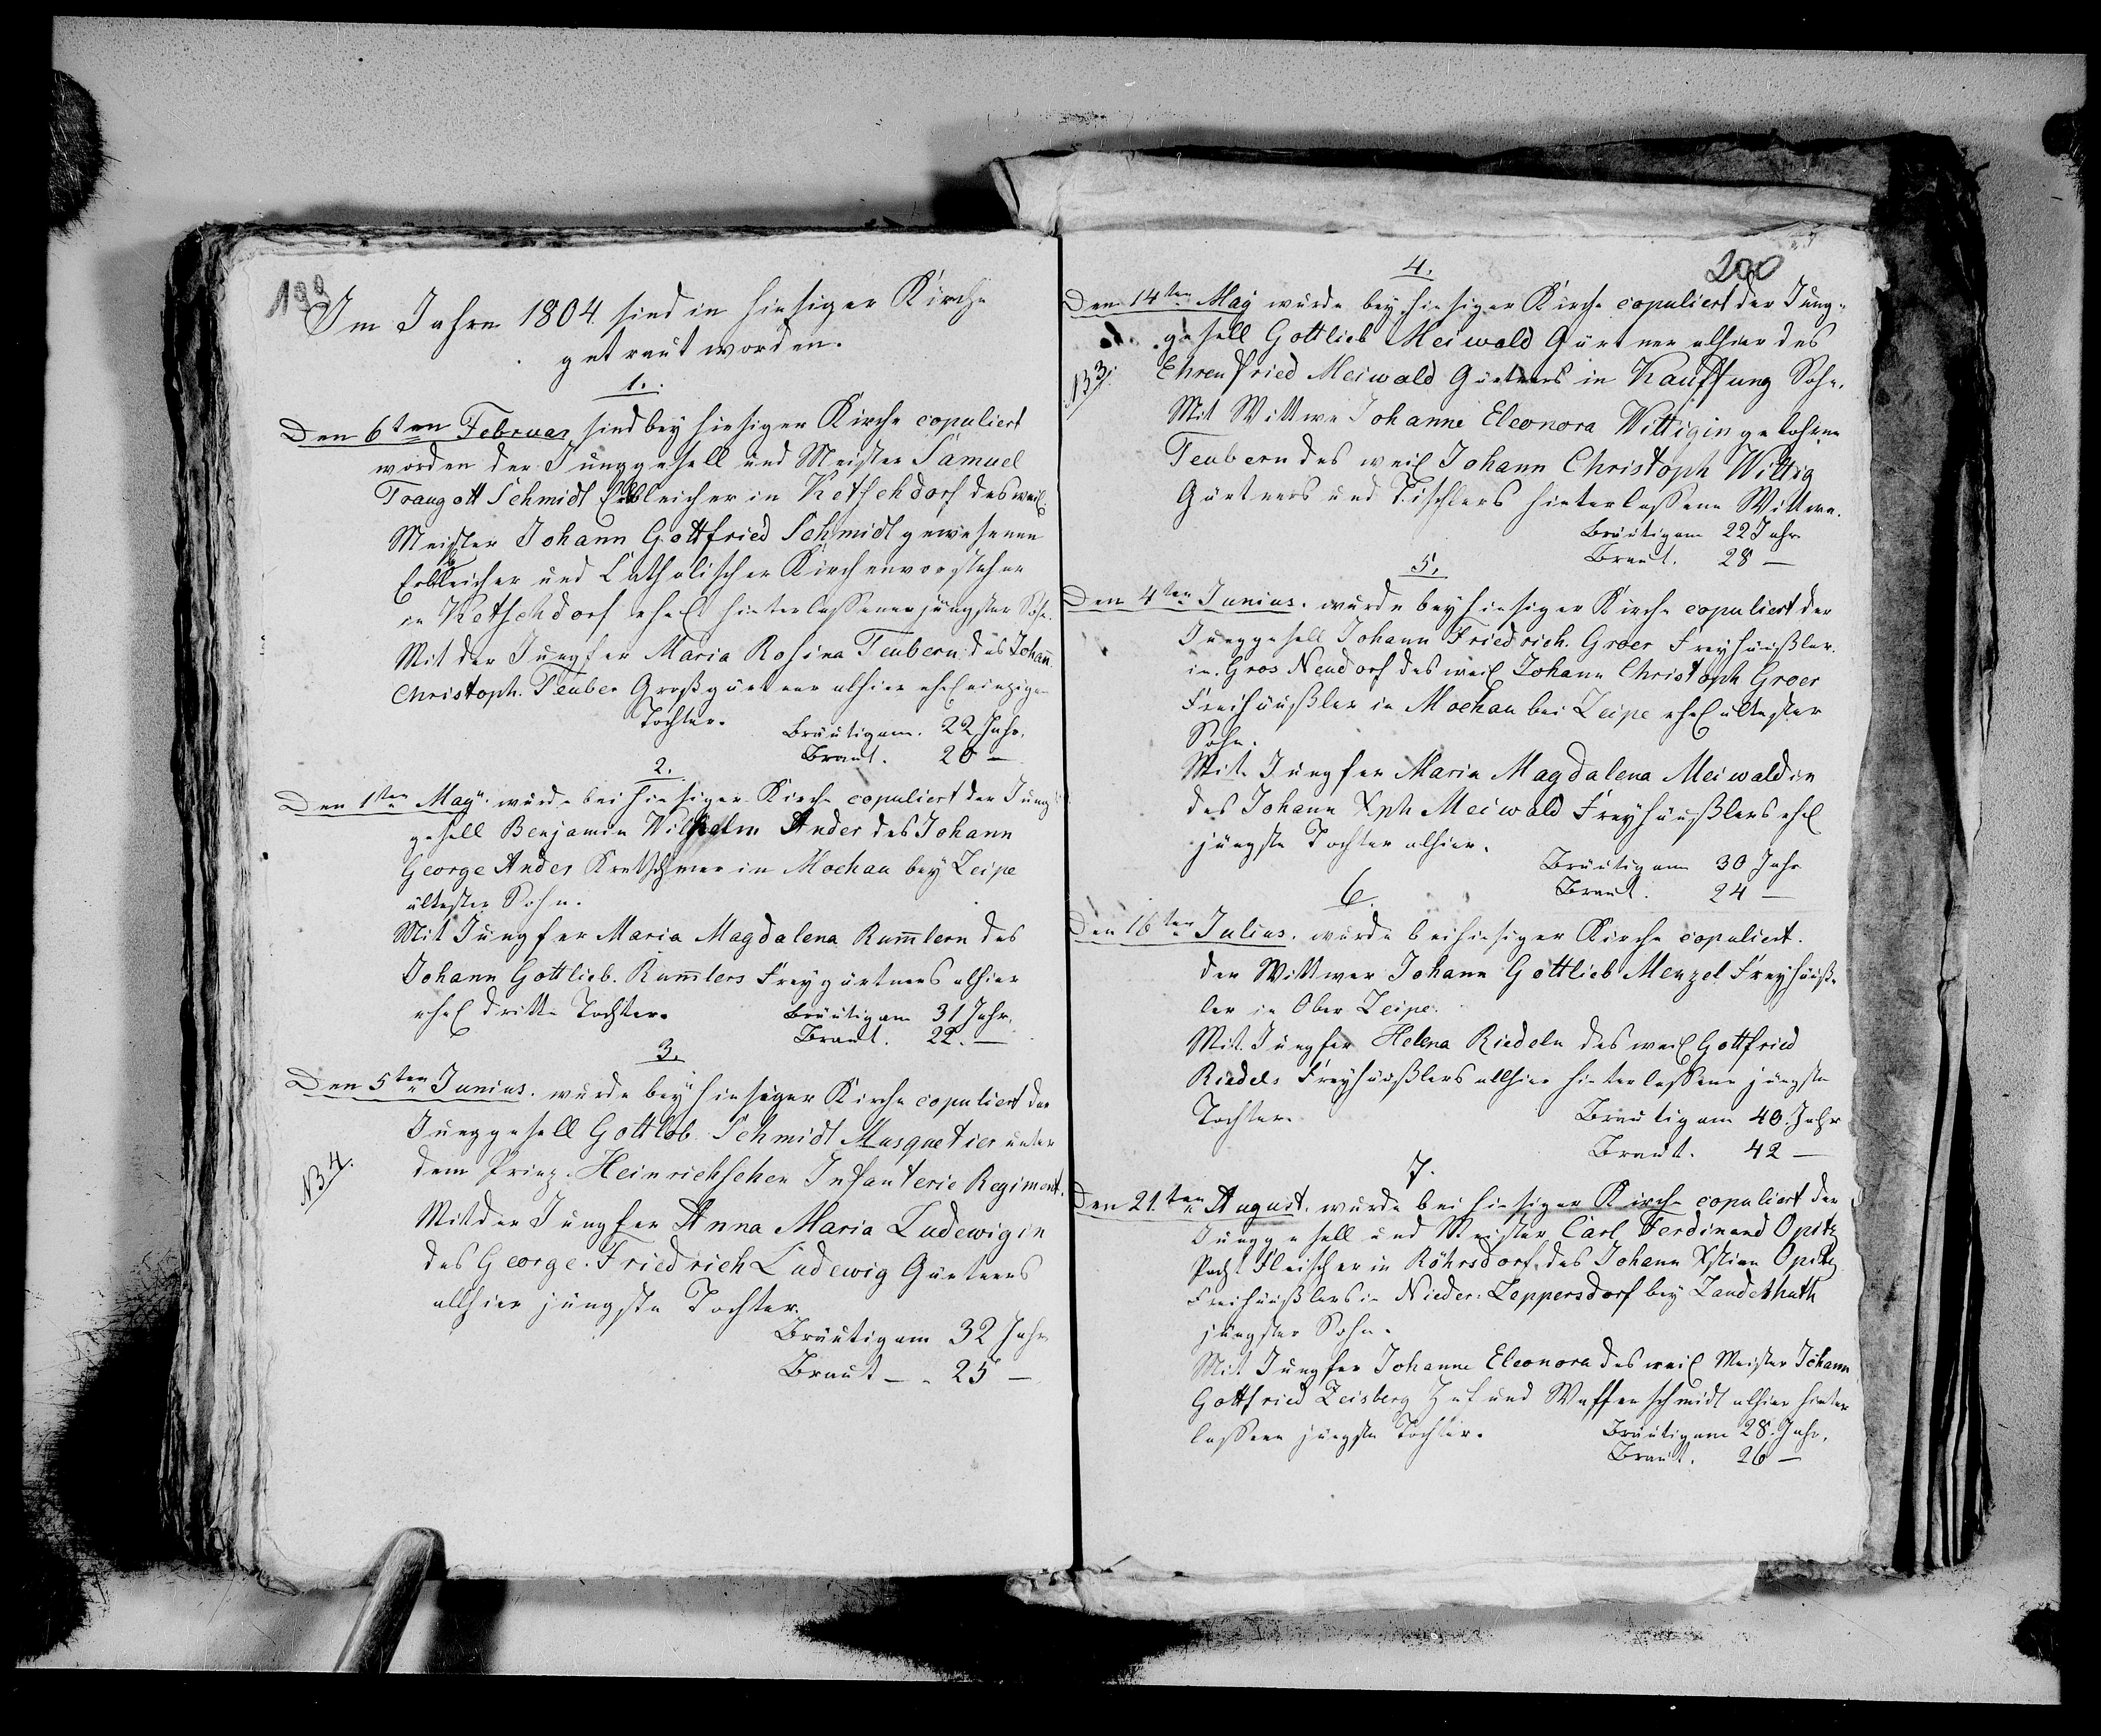 199
Im Jahre 1804 sind in hiesiger Kirche
getraut worden.
1.
Den 6ten Februar sind bey hiesiger Kirche copuliert
worden der Junggesell und Meister Samuel
Traugott Schmidt Erbbleicher in Ketschdorf des weil.
Meister Johann Gottfried Schmidt gewesenen
Erbbleicher und Catholischer Kirchenvorsteher
in Ketschdorf ehel hinterlassener jüngster Sohn.
Mit der Jungfer Maria Rosina Teubern des Johañ
Christoph. Teuber Großgärtner alhier ehel einzige
Tochter.
Bräutigam. 22 Jahr.
Braut. 20 —
2.
Den 1ten May. wurde bei hiesiger Kirche copuliert der Jung
gesell Benjamin Wilhelm Ander des Johann
George Ander Kretschmer in Mochau bey Leipe
ältester Sohn.
Mit Jungfer Maria Magdalena Rum̄lern des
Johann Gottlieb. Rum̄lers Freygärtners alhier
ehel dritte Tochter.
Bräutigam 31 Jahr.
Braut. 22. —
3.
Den 5ten Junius. wurde bey hiesiger Kirche copuliert der
Junggesell Gottlob Schmidt Musquetier unter
dem Prinz. Heinrichschen Infanterie Regiment.
NB 4.
Mit der Jungfer Anna Maria Ludewigin
des George. Friedrich Ludewig Gärtners
allhier jüngste Tochter.
Bräutigam 32 Jahr
Braut — . 25 —
200
4.
Den 14ten May wurde bey hiesiger Kirche copuliert der Jung=
gesell Gottlieb Meiwald Gärtner alhier des
NB 3.
Ehrenfried Meiwald Gärtners in Kauffung Sohn.
Mit Wittwe Johanne Eleonora Wittigin gebohrne
Teubern des weil Johann Christoph Wittig
Gärtners und Tischlers hinterlassene Wittwe.
Bräutigam 22 Jahr
Braut. 28 —
5.
Den 4ten Junius. wurde bey hiesiger Kirche copuliert der
Junggesell Johann Friedrich. Groer Freyhäußler.
in. Gros Neudorf des weil Johann Christoph Groer
Freihäußler in Mochau bei Leipe ehel ältester
Sohn.
Mit Jungfer Maria Magdalena Meiwaldin
des Johann Xph Meiwald Freyhäußlers ehel
jüngste Tochter alhier.
Bräutigam 30 Jahr
Braut. 24 —
6.
Den 16ten Julius. wurde bei hiesiger Kirche copuliert.
der Wittwer Johann Gottlieb Menzel Freyhäuß=
ler in Ober Leipe.
Mit Jungfer Helena Riedeln des weil Gottfried
Riedels Freyhäußlers allhier hinterlassene jüngste
Tochter.
Bräutigam 40. Jahr
Braut. 42 —
7.
Den 21.ten August. wurde bei hiesiger Kirche copuliert der
Junggesell und Meister Carl Ferdinand Opitz
Pacht Fleischer in Röhrsdorf. des Johann Xstian Opitz
Freihäußlers in Nieder: Leppersdorf bey Landethuth
jüngster Sohn.
Mit Jungfer Johanne Eleonora des weil Meister Johann
Gottfried Zeisberg Huf und Waffenschmidt alhier hinter
lassene jüngste Tochter.
Bräutigam 28. Jahr.
Braut. 26 —